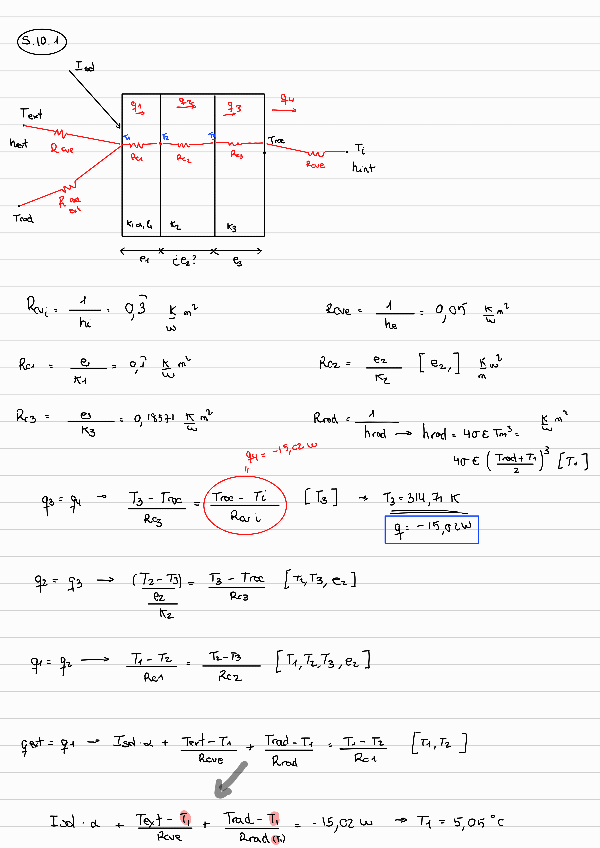 S.10.1
Isol
q1 q2 q3 q4
Text
hext
Rcve
T1 T2 T3 Troc
Rc1 Rc2 Rc3
Rcve
Ti
hint
Trad
K1, α, ε1 K2 K3
e1 ¿e2? e3
Rcvi = 1/hi = 0,3̂ K/W m²
Rcve = 1/he = 0,05 K/W m²
Rc1 = e1/K1 = 0,1̂ K/W m²
Rc2 = e2/K2 [e2,] K/m W²
Rc3 = e3/K3 = 0,18571 K/W m²
Rrad = 1/hrad → hrad = 4σ ε Tm³ = K/W m²
4σ ε (Trad + T1/2)³ [T1]
q4 = -15,02 W
q3 = q4 → T3 - Troc/Rc3 = Troc - Ti/Rcvi [T3] → T3 = 314,71 K
q = -15,02 W
q2 = q3 → (T2 - T3)/e2/K2 = T3 - Troc/Rc3 [T2, T3, e2]
q1 = q2 → T1 - T2/Rc1 = T2 - T3/Rc2 [T1, T2, T3, e2]
qext = q1 → Isol · α + Text - T1/Rcve + Trad - T1/Rrad = T1 - T2/Rc1 [T1, T2]
Isol · α + Text - T1/Rcve + Trad - T1/Rrad (T1) = -15,02 W → T1 = 5,05 °C